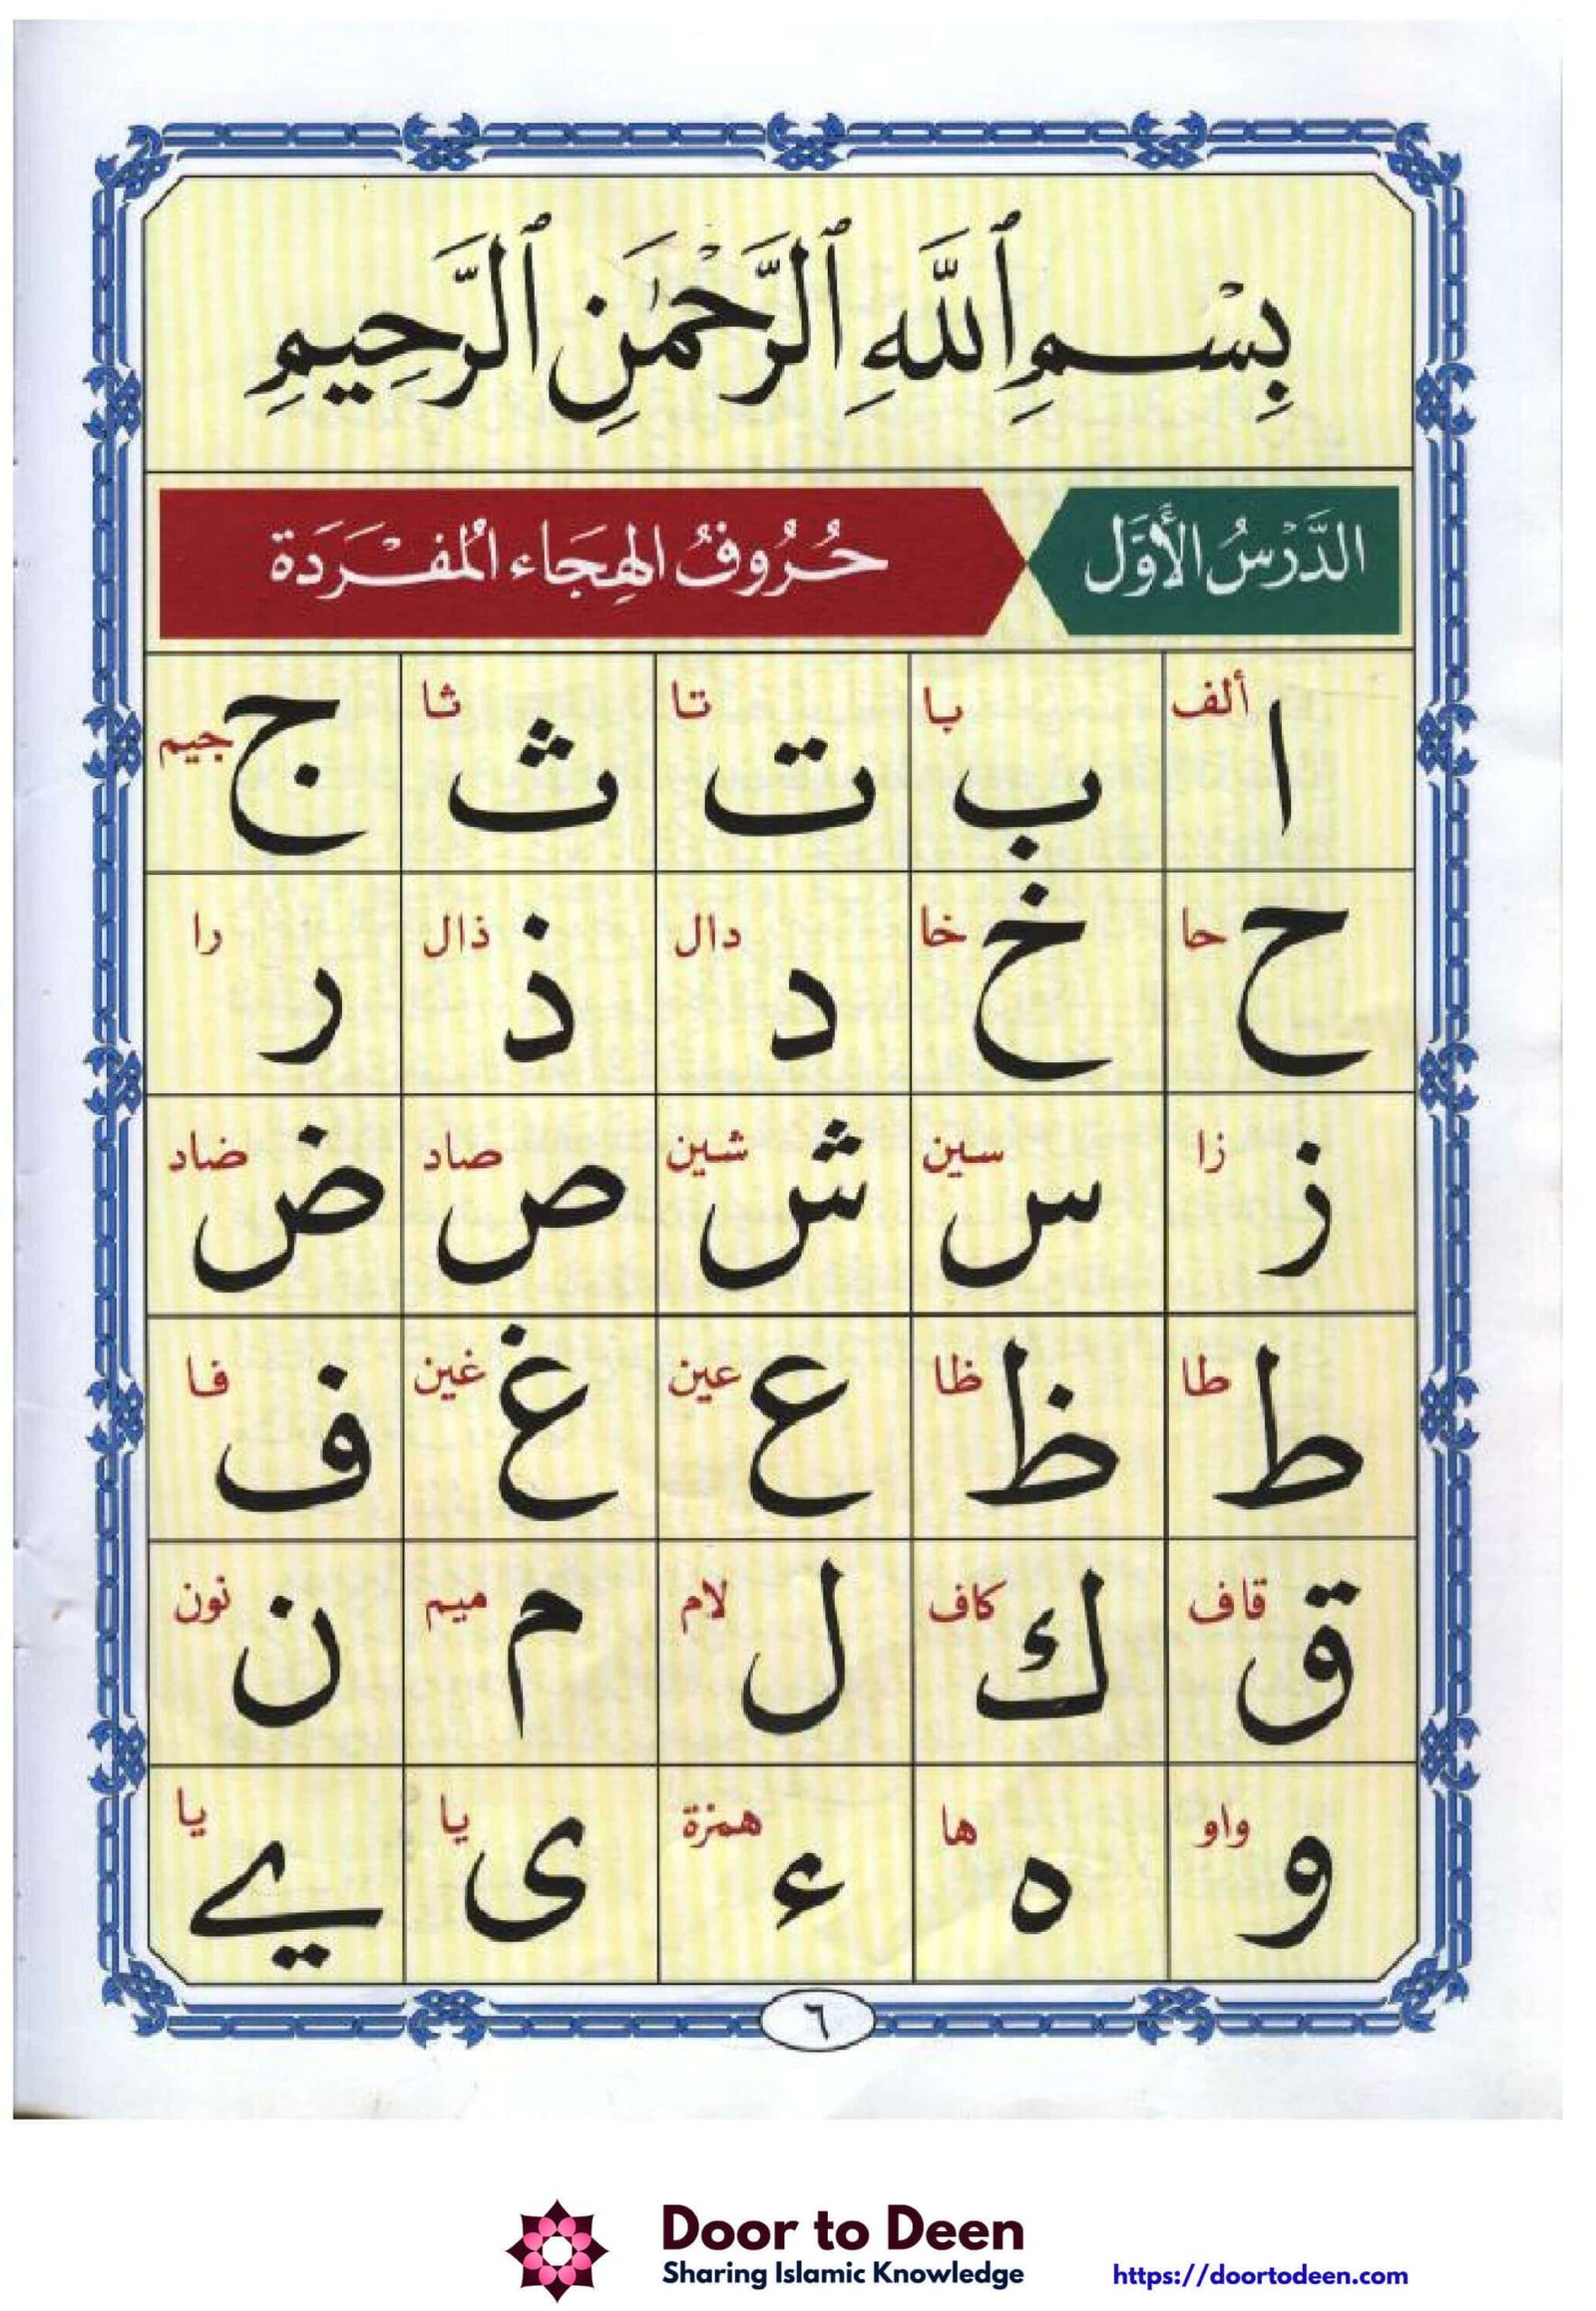 بِسْمِ ٱللَّهِ ٱلرَّحْمَٰنِ ٱلرَّحِيمِ
الدَّرْسُ الأَوَّلُ حُرُوفُ الهِجَاءِ المُفْرَدَة
ا ألف ب با ت تا ث ثا ج جيم
ح حا خ خا د دال ذ ذال ر را
ز زا س سين ش شين ص صاد ض ضاد
ط طا ظ ظا ع عين غ غين ف فا
ق قاف ك كاف ل لام م ميم ن نون
و واو ه ها ء همزة ى يا ے يا
٦
Door to Deen
Sharing Islamic Knowledge
https://doortodeen.com